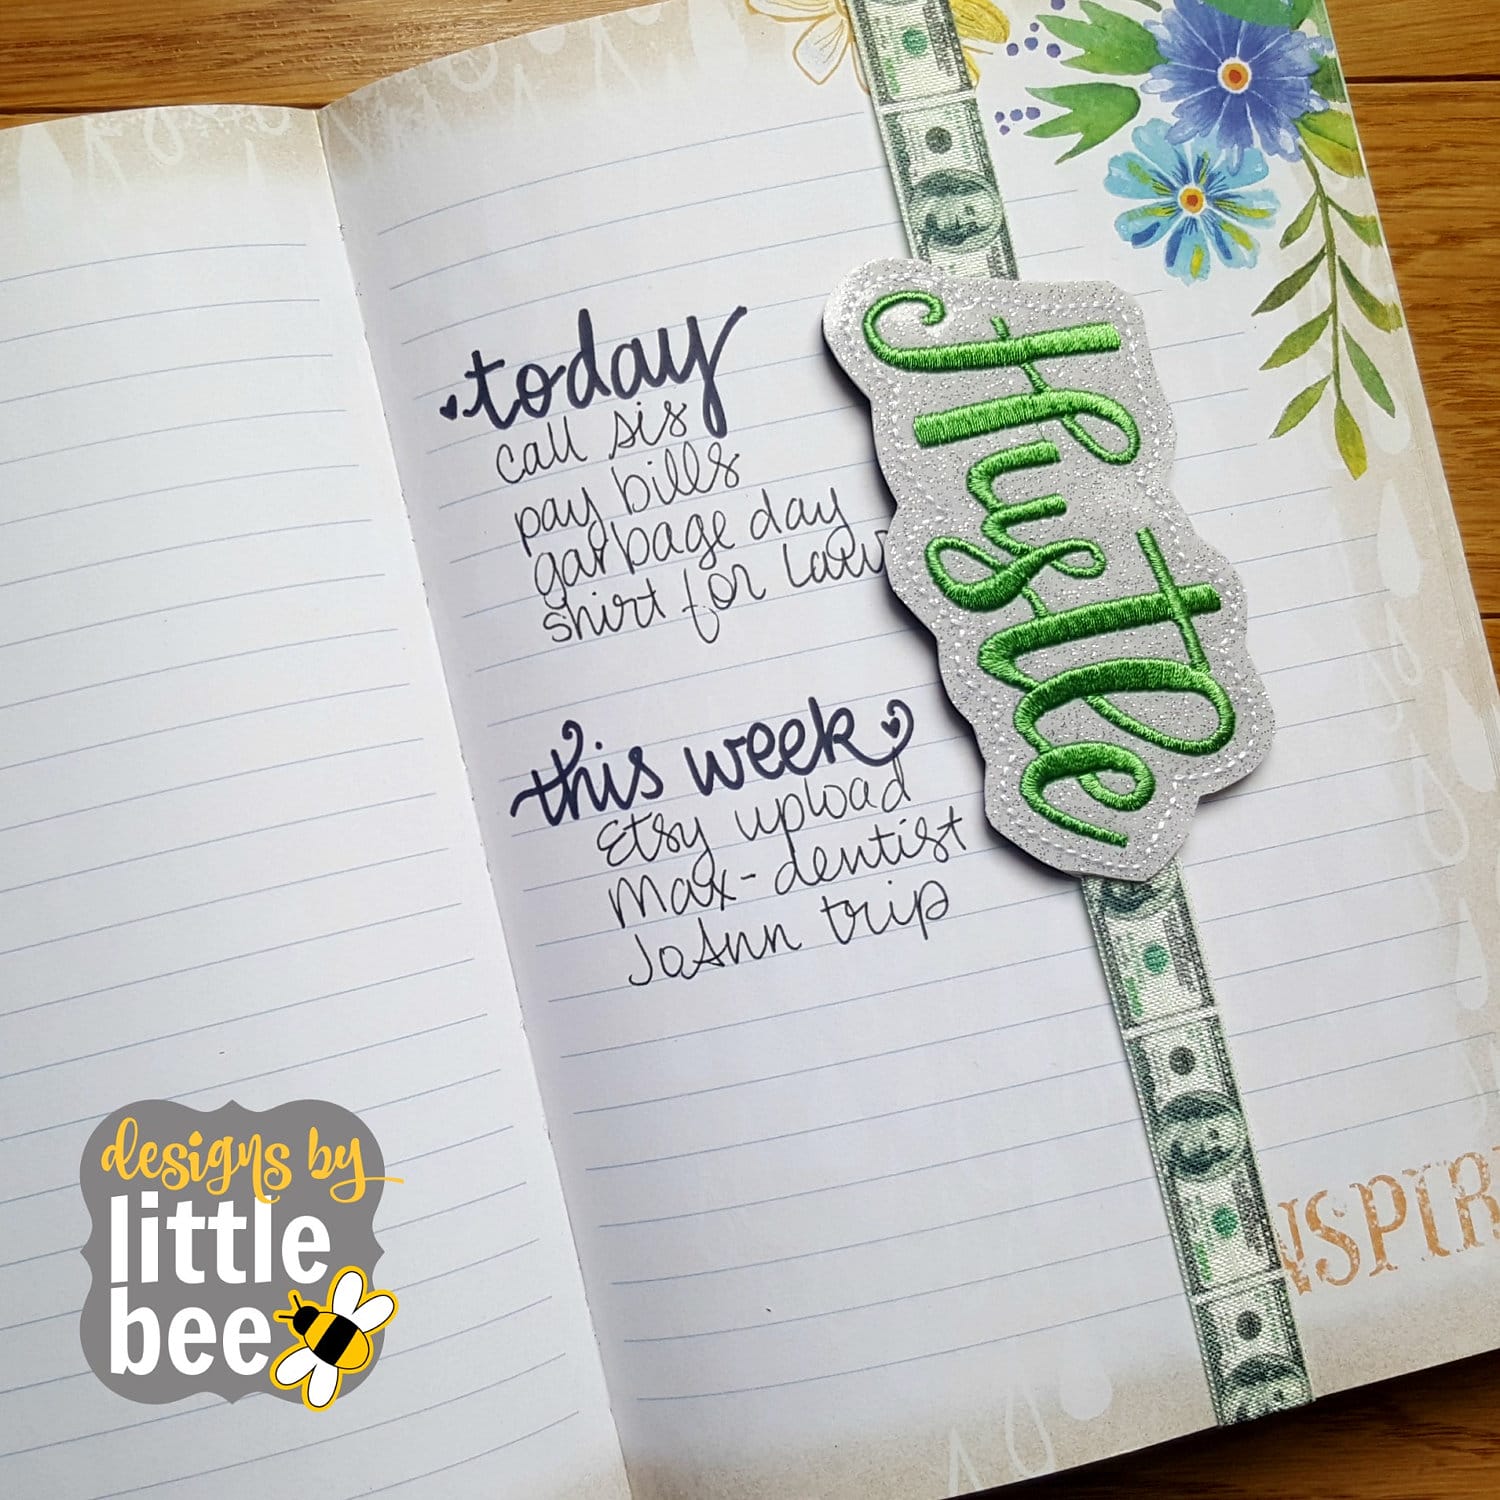 today
call sis
pay bills
garbage day
shirt for
this week
Etsy upload
Max - dentist
JoAnn trip
Hustle
NSPIR
designs by
little
bee